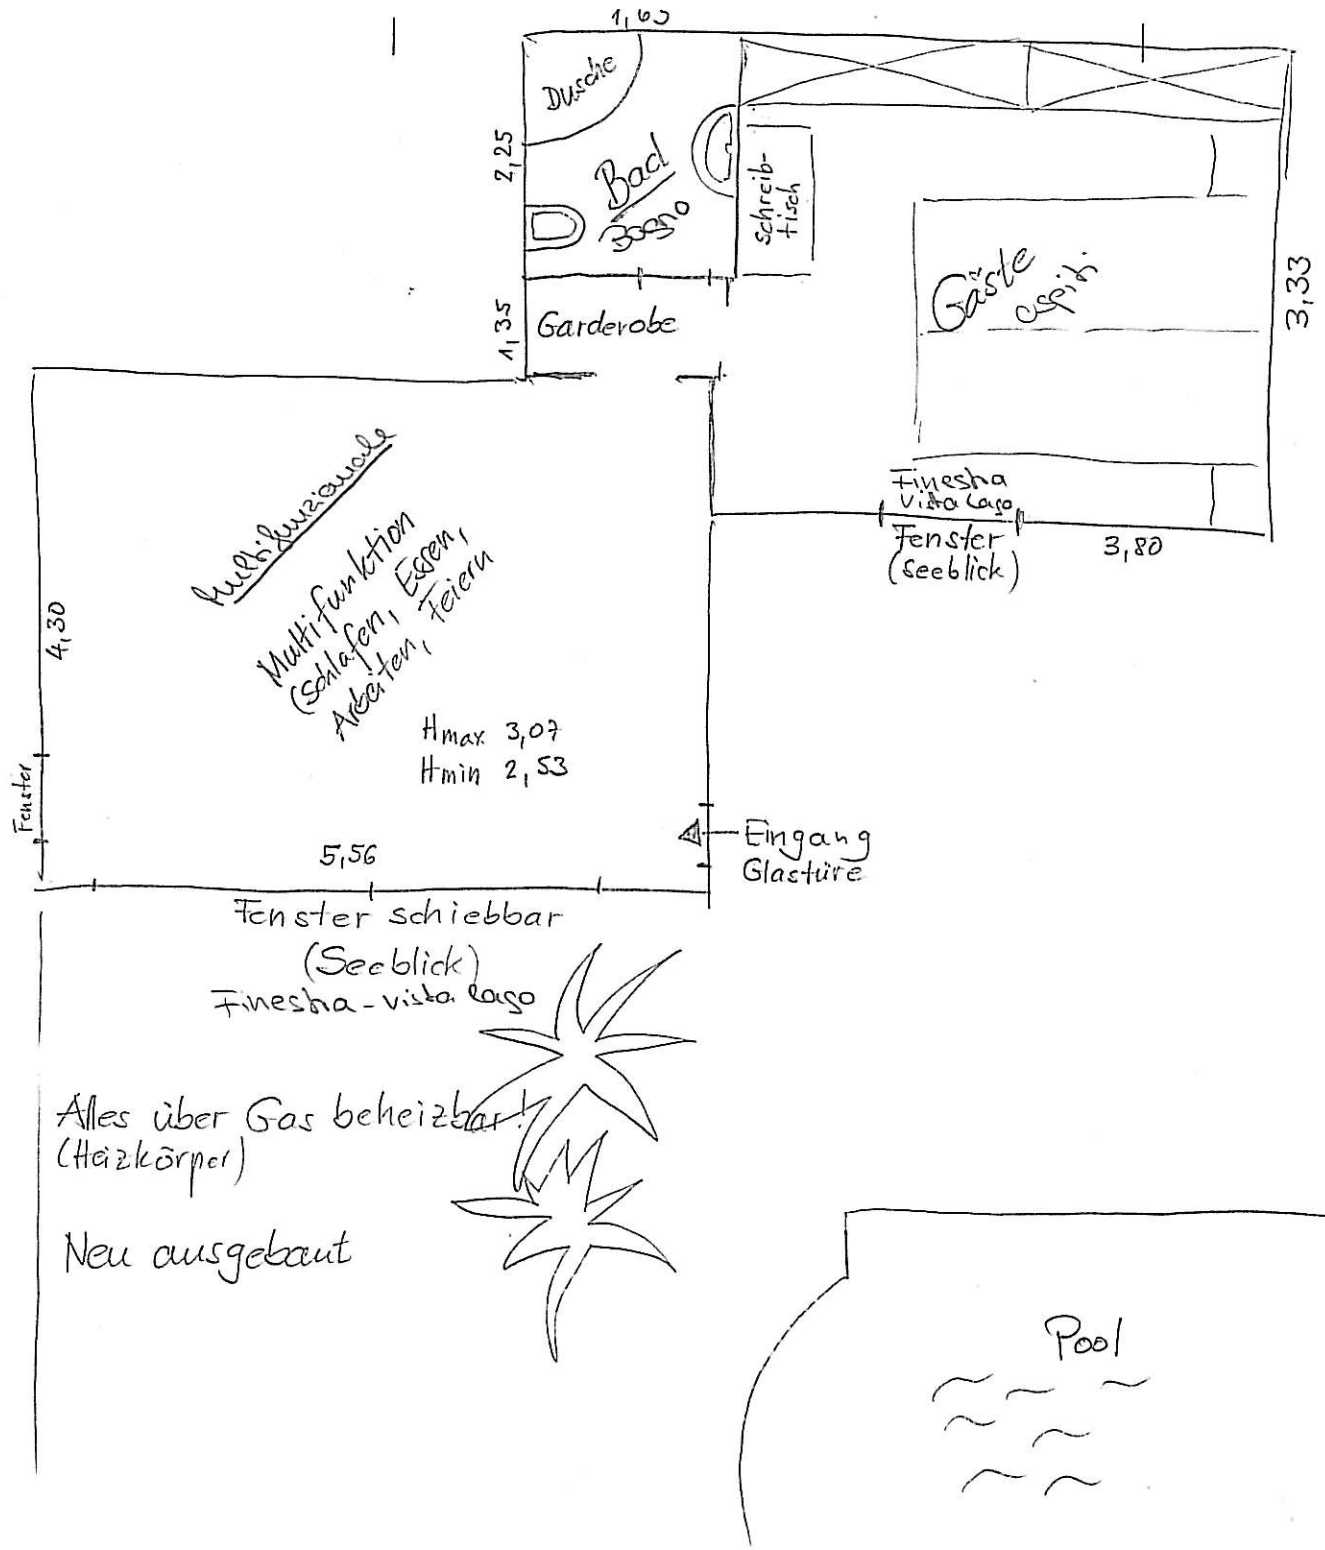 1,65
Dusche
2,25
Bad
Bagno
Schreib-
tisch
Gäste
ospiti
3,33
1,35
Garderobe
Finestra
vista lago
Fenster
(Seeblick)
3,80
Multifunzionale
Multifunktion
(Schlafen, Essen,
Arbeiten, Feiern
4,30
Hmax 3,07
Hmin 2,53
Fenster
Eingang
Glastüre
5,56
Fenster schiebbar
(Seeblick)
Finestra - vista lago
Alles über Gas beheizbar!
(Heizkörper)
Neu ausgebaut
Pool